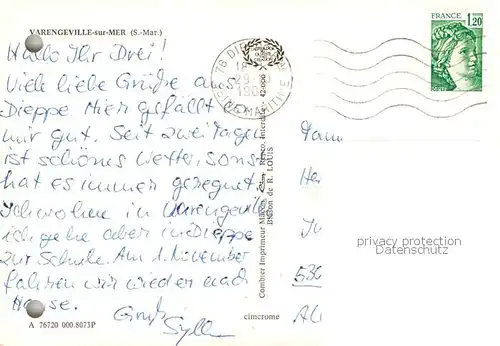 VARENGEVILLE-sur-MER (S.-Mar.)
Hallo Ihr Drei!
Viele liebe Grüße aus
Dieppe. Hier gefällt es
mir gut. Seit zwei Tagen
ist schönes Wetter, sonst
hat es immer geregnet.
Ich wohne in Varengeville
ich gehe aber in Dieppe
zur Schule. Am 1. November
fahren wir wieder nach
Hause.
Gruß
A 76720 000.8073P
cimcrome
Combier Imprimeur Mâcon
76 DIEPPE
MARITIME
FRANCE
1,20
Fam
He
530
privacy protection
Datenschutz